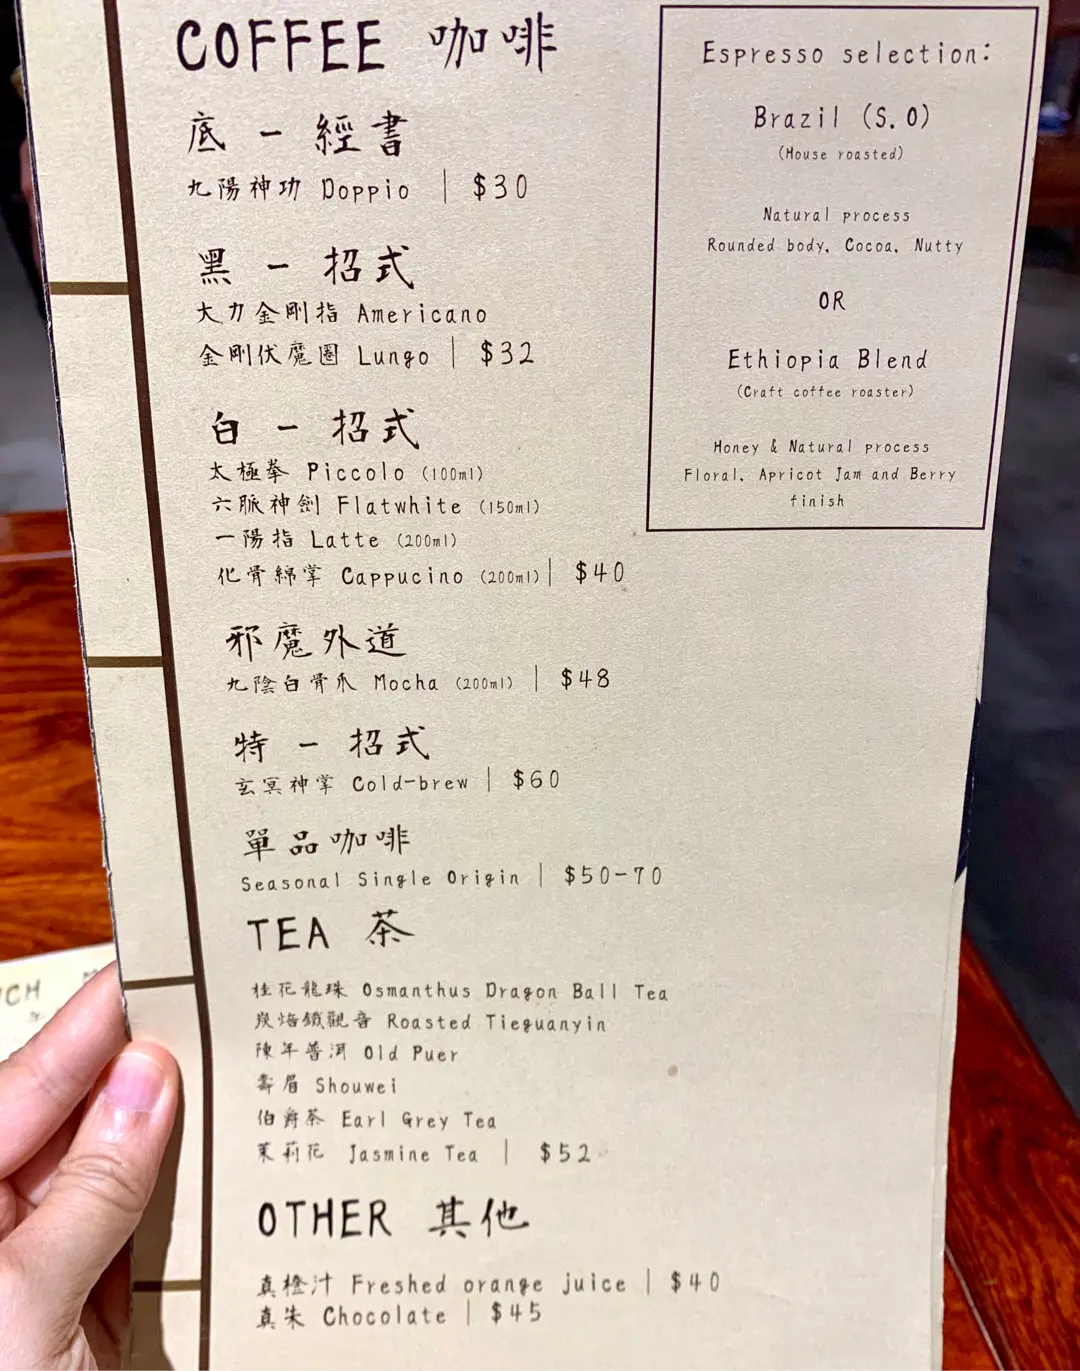 COFFEE 咖啡
底 - 經書
九陽神功 Doppio | $30
黑 - 招式
大力金剛指 Americano
金剛伏魔圈 Lungo | $32
白 - 招式
太極拳 Piccolo (100ml)
六脈神劍 Flatwhite (150ml)
一陽指 Latte (200ml)
化骨綿掌 Cappucino (200ml) | $40
邪魔外道
九陰白骨爪 Mocha (200ml) | $48
特 - 招式
玄冥神掌 Cold-brew | $60
單品咖啡
Seasonal Single Origin | $50-70
TEA 茶
桂花龍珠 Osmanthus Dragon Ball Tea
炭焙鐵觀音 Roasted Tieguanyin
陳年普洱 Old Puer
壽眉 Shouwei
伯爵茶 Earl Grey Tea
茉莉花 Jasmine Tea | $52
OTHER 其他
真橙汁 Freshed orange juice | $40
真朱 Chocolate | $45
Espresso selection:
Brazil (S.O)
(House roasted)
Natural process
Rounded body, Cocoa, Nutty
OR
Ethiopia Blend
(Craft coffee roaster)
Honey & Natural process
Floral, Apricot Jam and Berry
finish